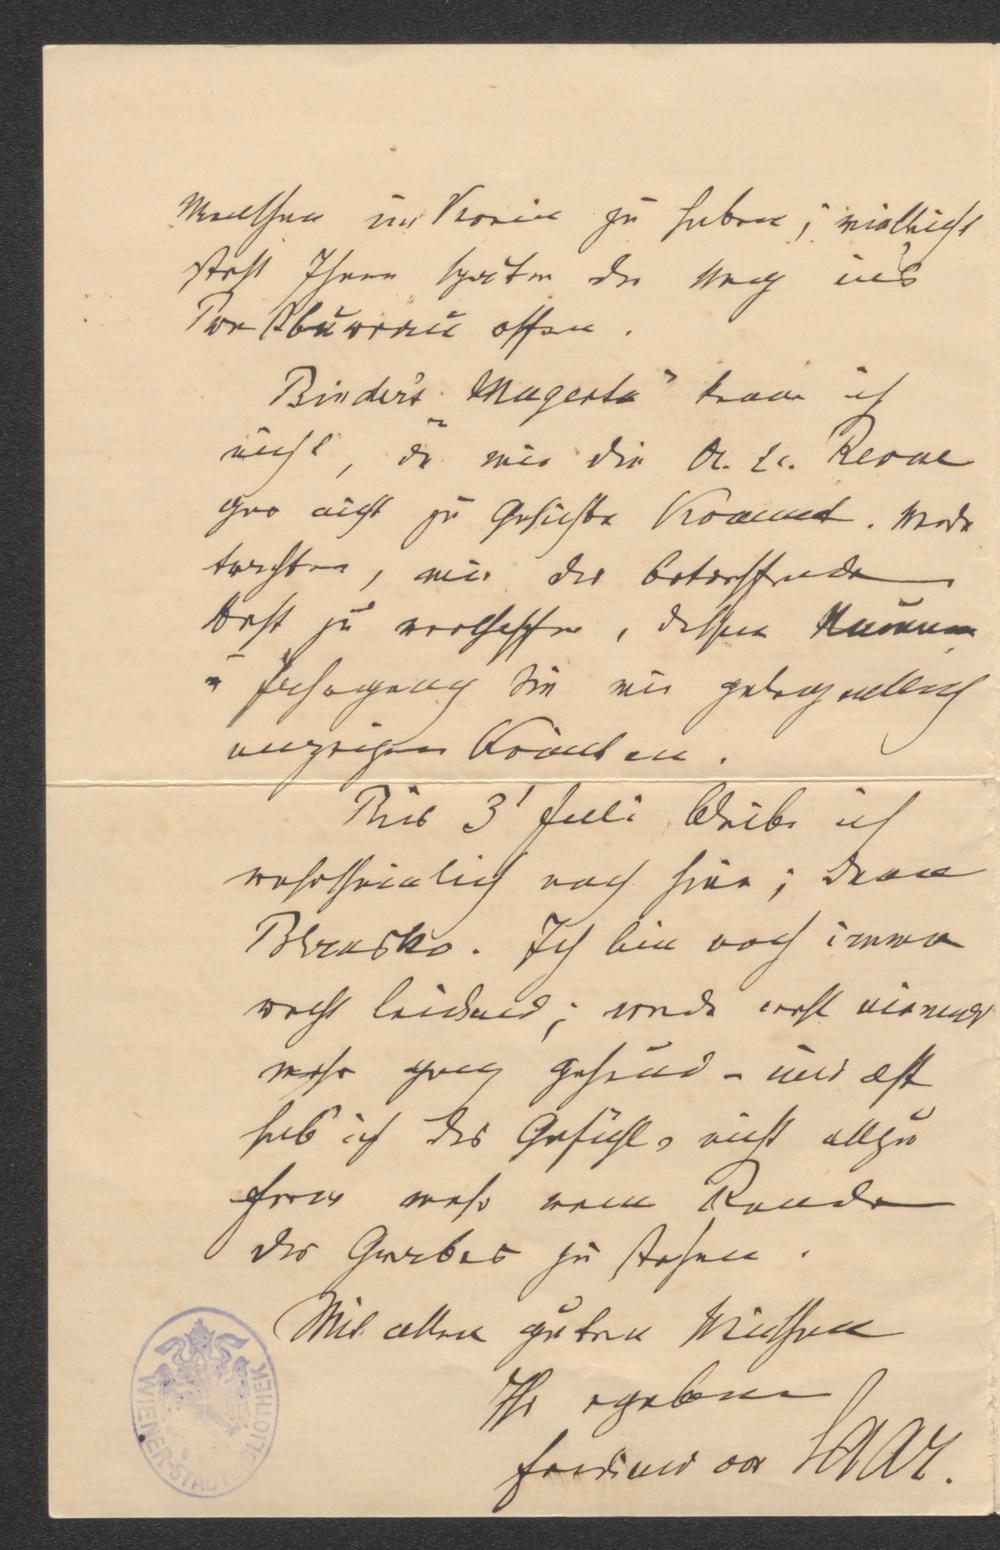 Menschen im Verein zu haben; vielleicht
steht Ihnen später der Weg in's
offen.
Binder's „Magenta" kenne ich
nicht, da mir die Oe. U. Revue
gar nicht zu Gesichte kommt. Werde
trachten, mir das betreffende
Heft zu verschaffen, dessen Numer
u Jahrgang Sie mir gelegentlich
anzeigen könnten.
Bis 3' Juli bleibe ich
wahrscheinlich noch hier; dann
Blansko. Ich bin noch immer
recht leidend; werde wohl niemals
mehr ganz gesund – und oft
hab' ich das Gefühl, nicht allzu
fern mehr vom Rande
des Grabes zu stehen.
Mit allen guten Wünschen
Ihr ergebener
Ferdinand von Saar.
WIENER-STADTBIBLIOTHEK